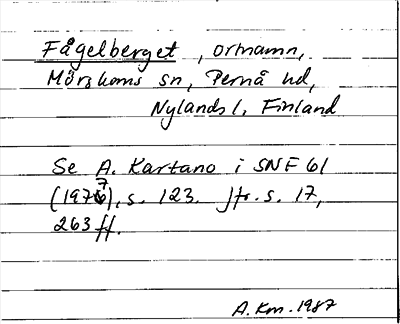 Fågelberget, ortnamn,
Mörskoms sn, Pernå hd,
Nylands l, Finland
Se A. Kartano i SNF 61
(1977), s. 123. Jfr. s. 17,
263 ff.
A. Km. 1987